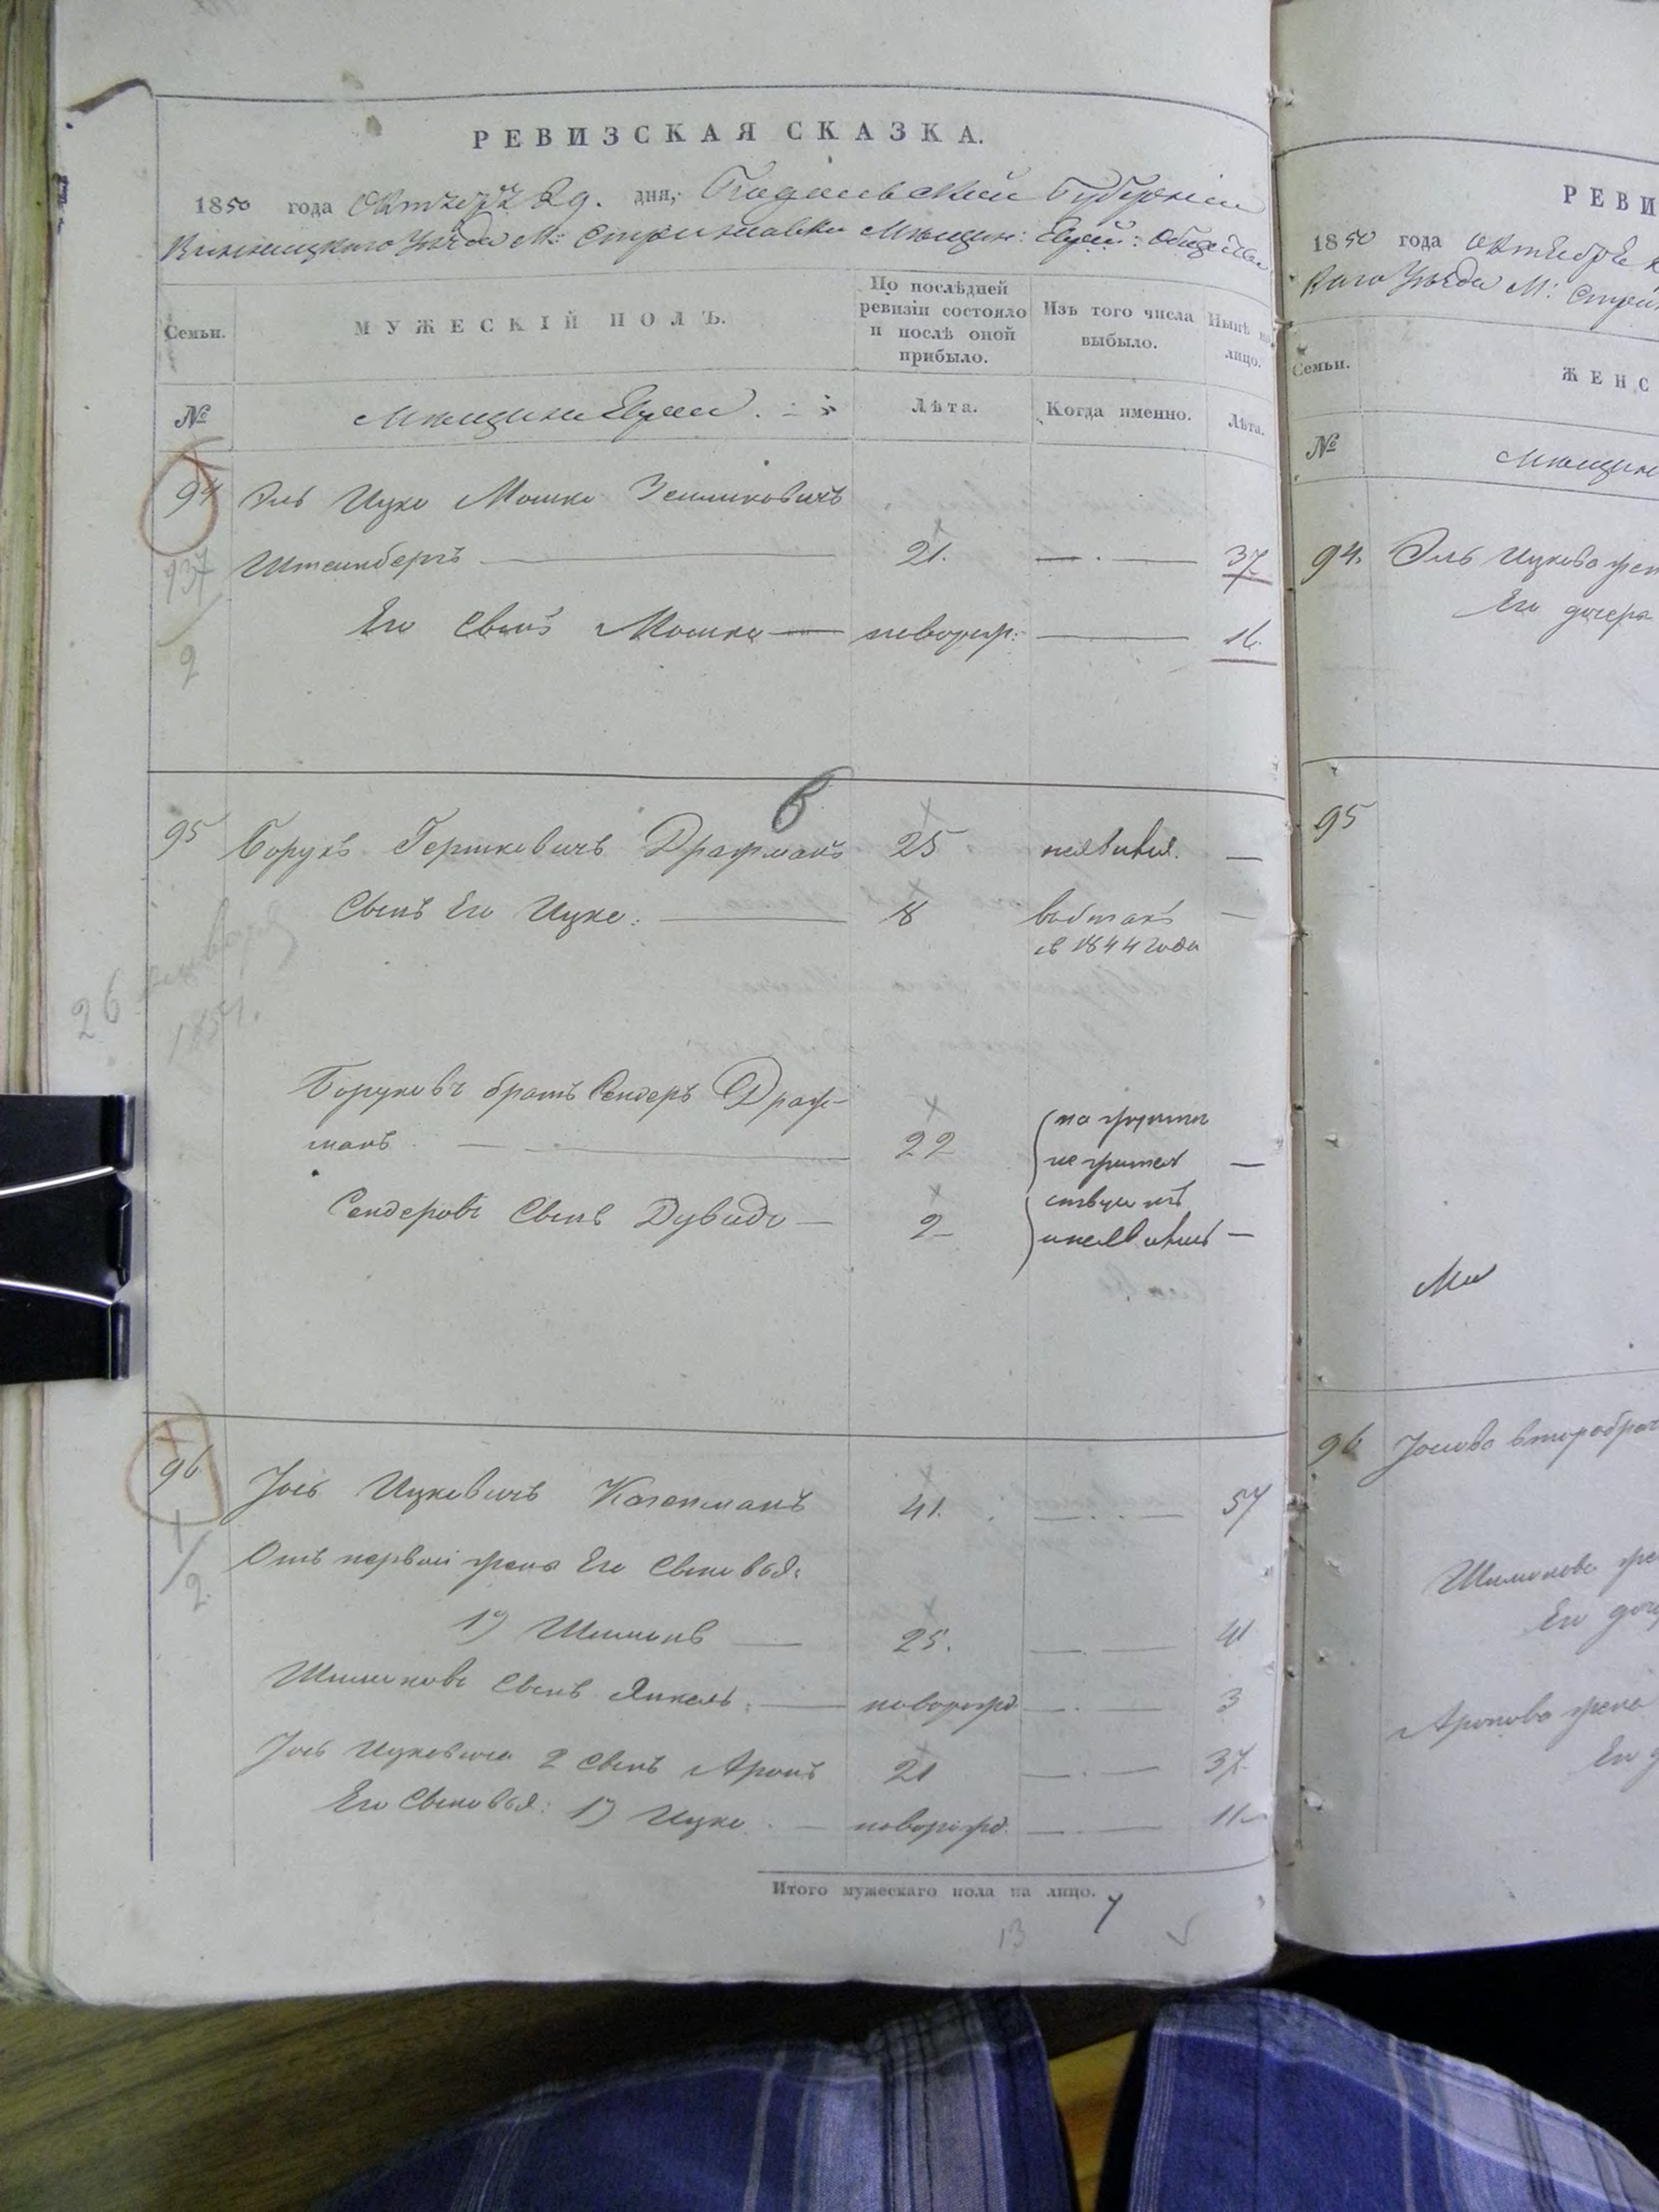 РЕВИЗСКАЯ СКАЗКА.
1850 года Октября 29. дня, Подольской Губерніи
Винницкаго Уѣзда М: Стрижавки Мѣщан: Еврей: Общества
Семьи.
МУЖЕСКІЙ ПОЛЪ.
По послѣдней ревизіи состояло и послѣ оной прибыло.
Изъ того числа выбыло.
Нынѣ на лицо.
№
Мѣщане Евреи.
Лѣта.
Когда именно.
Лѣта.
94 Эль Ицко Мошко Зельмановичъ
Штеинбергъ 21. 37
Его Сынъ Мошко новорож: 16.
2
95 Борухъ Гершковичъ Драфманъ 25 неявився. —
Сынъ Его Ицко. 8 выбылъ —
съ 1844 года
26 января
1851.
Боруховъ братъ Сендеръ Драф-
манъ 22
Сендеровъ Сынъ Дувидъ — 2
96 Іось Ицковичъ 41. 57
Отъ первой жены Его Сыновья:
1/2.
1) Шимонъ — 25. 41
Шимоновъ Сынъ Янкель. новорожд 3
Іося Ицковича 2 Сынъ Аронъ 21 37.
Его Сыновья: 1) Ицко новорожд. 11
Итого мужескаго пола на лицо. 7
13
РЕВИ
1850 года Октября
каго Уѣзда М: Стри
Семьи.
ЖЕНС
№
Мѣщане
94. Эль Ицкова жен
Его дочери
95
96 Іосіова второбрач
Шимонова же
Его доч
Аронова жена
Его д